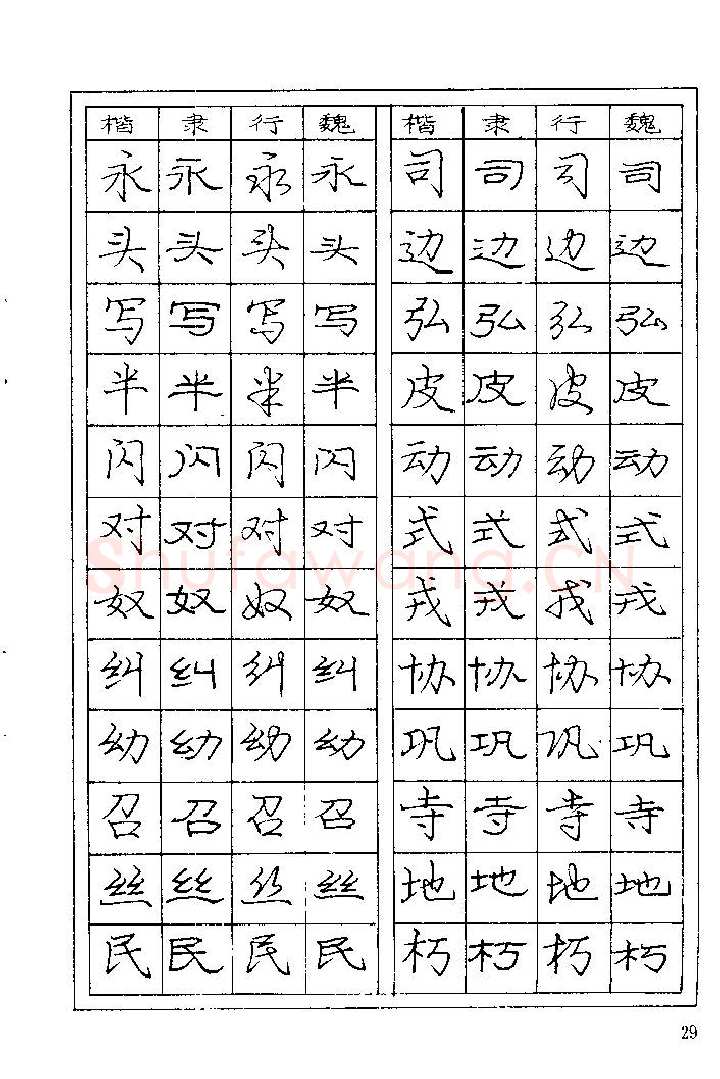 楷 隶 行 魏 楷 隶 行 魏
永 永 永 永 司 司 司 司
头 头 头 头 边 边 边 边
写 写 写 写 弘 弘 弘 弘
半 半 半 半 皮 皮 皮 皮
闪 闪 闪 闪 动 动 动 动
对 对 对 对 式 式 式 式
Shufawang.CN
奴 奴 奴 奴 戎 戎 戎 戎
纠 纠 纠 纠 协 协 协 协
幼 幼 幼 幼 巩 巩 巩 巩
召 召 召 召 寺 寺 寺 寺
丝 丝 丝 丝 地 地 地 地
民 民 民 民 朽 朽 朽 朽
29